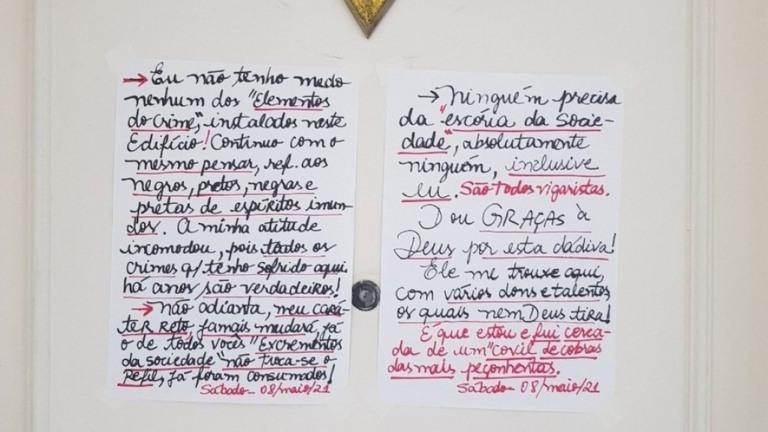 → Eu não tenho medo
nenhum dos "Elementos
do Crime", instalados neste
Edifício! Continuo com o
mesmo pensar, ref. aos
negros, pretos, negras e
pretas de espíritos imun-
dos. A minha atitude
incomodou, pois todos os
crimes q/ tenho sofrido aqui
há anos são verdadeiros!
→ Não adianta, meu cará-
teR Reto jamais mudará, já
o de todos vocês "Excrementos
da sociedade" não troca-se o
Refil, já foram consumados!
Sábado - 08/maio/21
→ Ninguém precisa
da "escória da Socie-
dade", absolutamente
ninguém, inclusive
eu. São todos vigaristas.
Dou GRAÇAS à
Deus por esta dádiva!
Ele me trouxe aqui,
com vários dons e talentos
os quais nem Deus tira!
É que estou e fui cerca-
da de um "covil de cobras
das mais peçonhentas.
Sábado - 08/maio/21